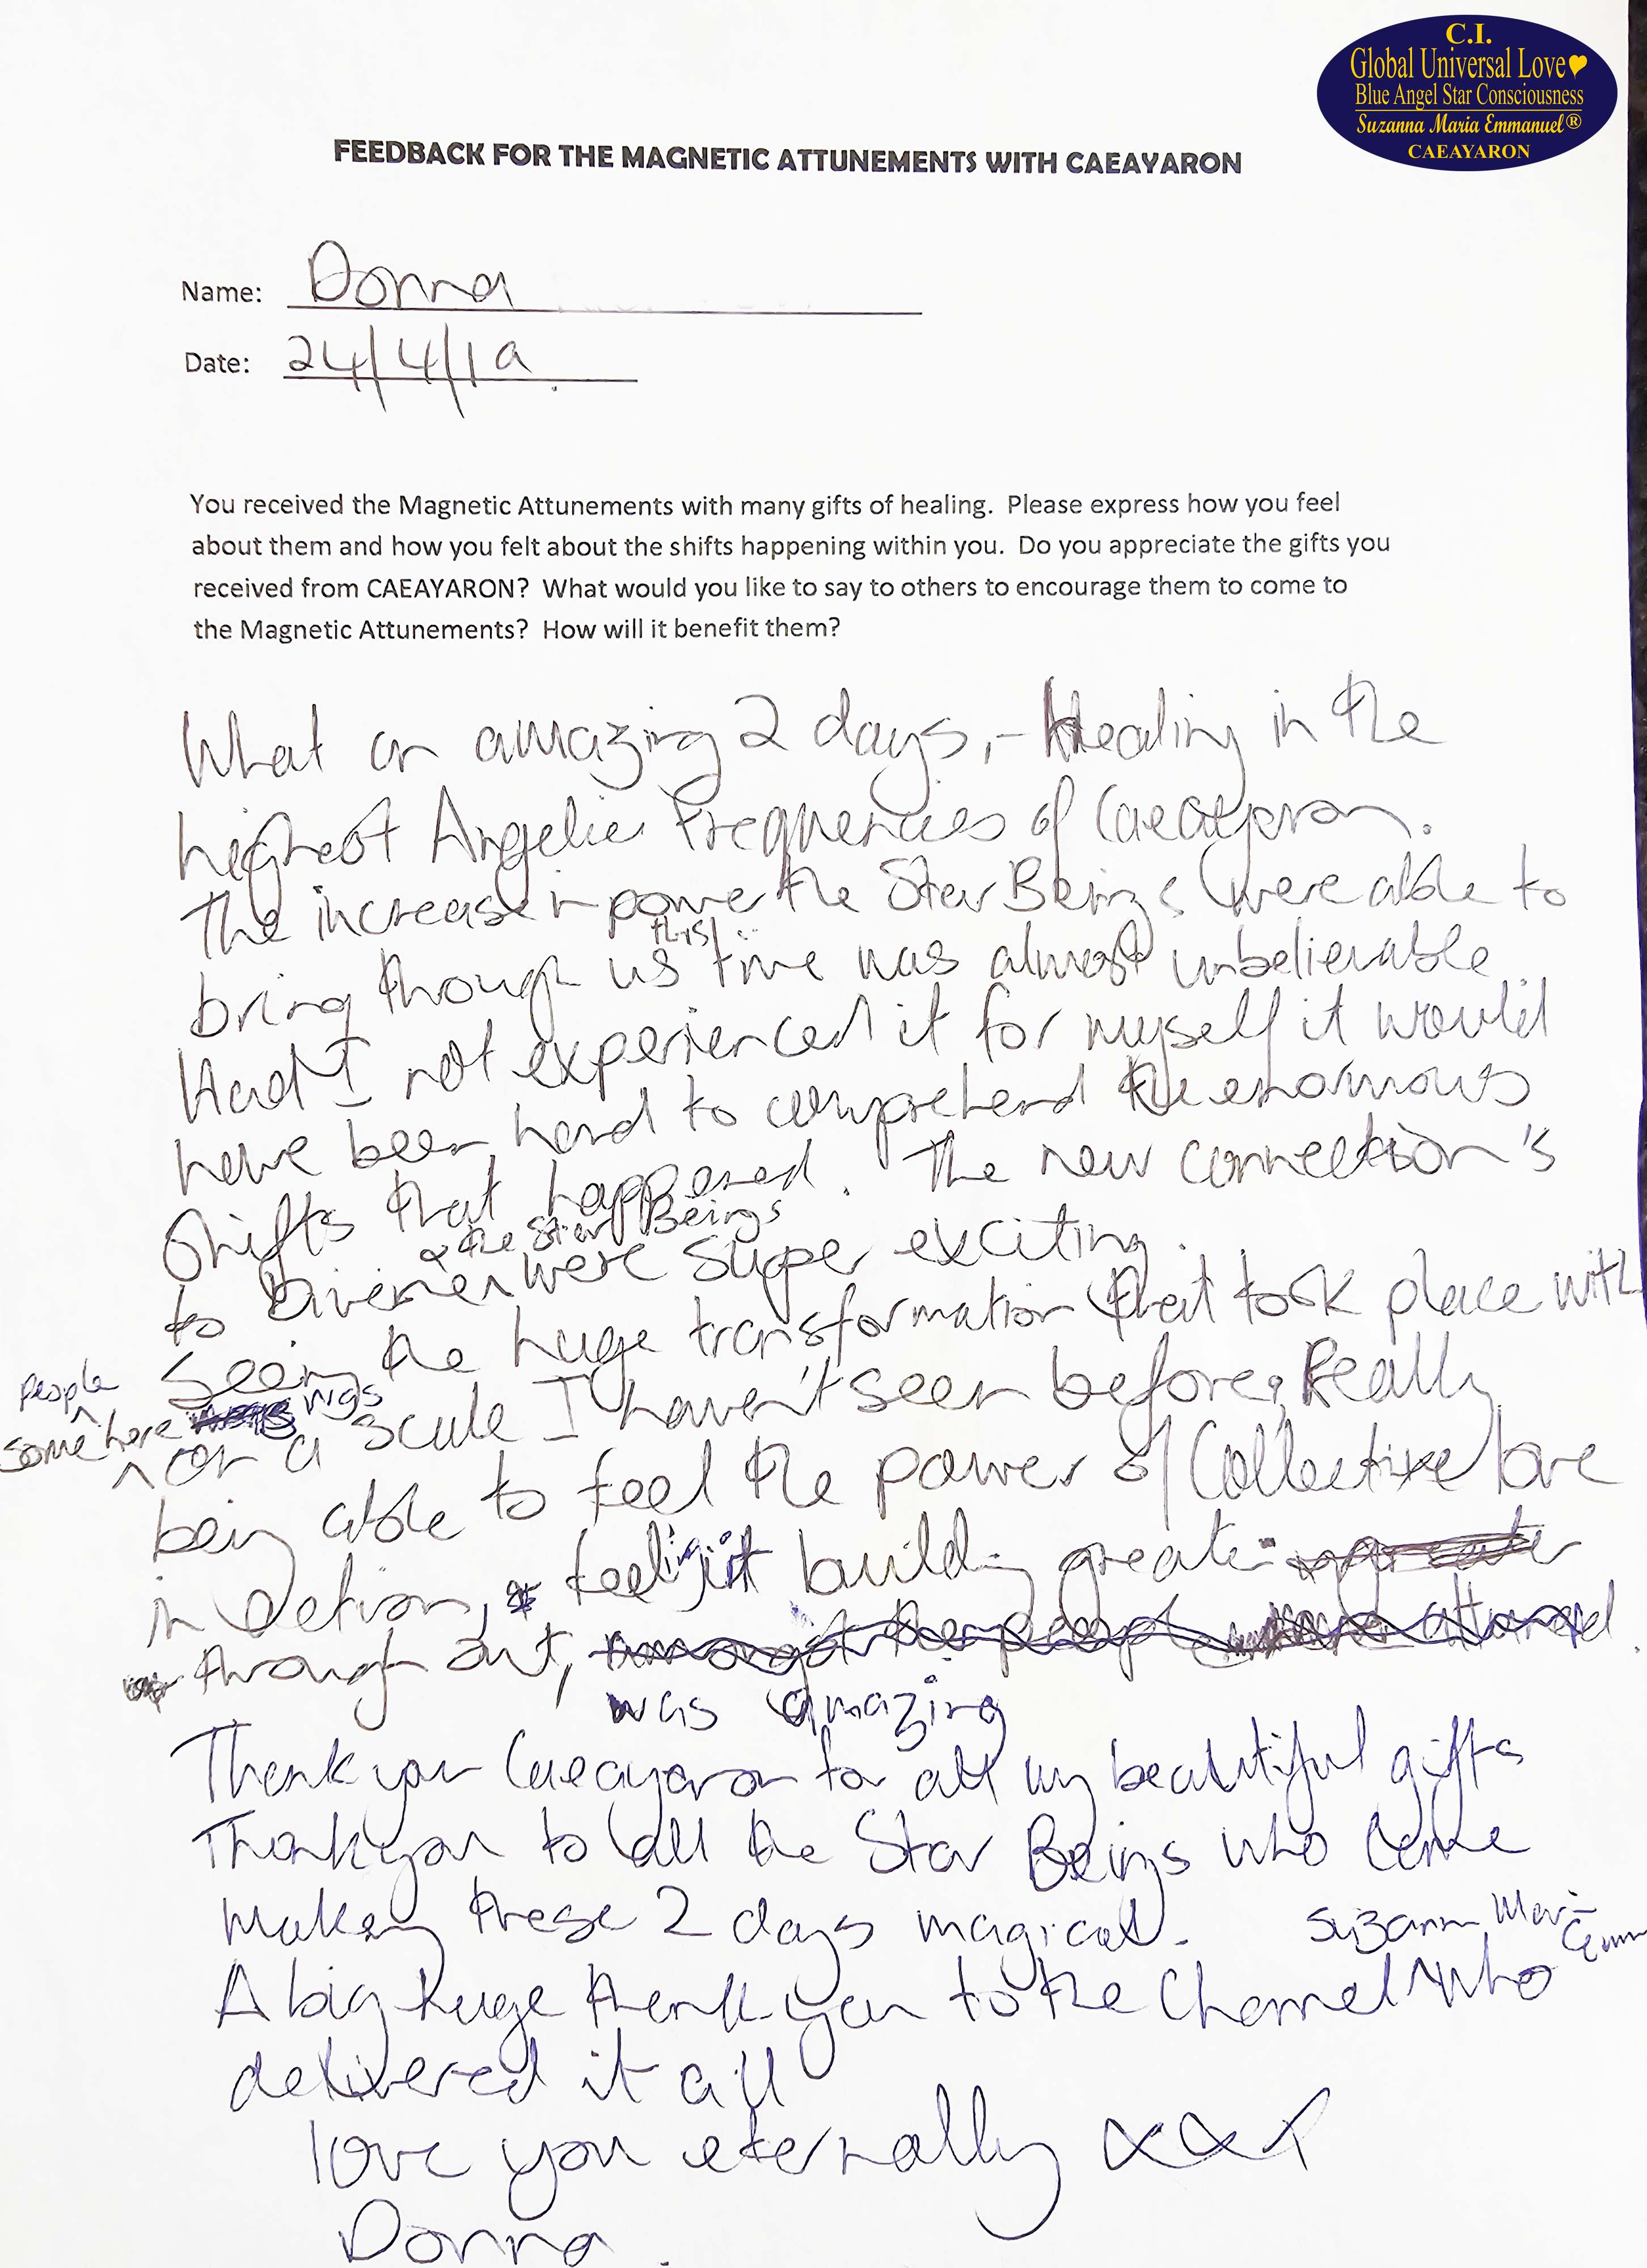 C.I.
Global Universal Love
Blue Angel Star Consciousness
Suzanna Maria Emmanuel®
CAEAYARON
FEEDBACK FOR THE MAGNETIC ATTUNEMENTS WITH CAEAYARON
Name: Donna
Date: 24/4/19
You received the Magnetic Attunements with many gifts of healing. Please express how you feel
about them and how you felt about the shifts happening within you. Do you appreciate the gifts you
received from CAEAYARON? What would you like to say to others to encourage them to come to
the Magnetic Attunements? How will it benefit them?
What an amazing 2 days, - Healing in the
highest Angelic Frequencies of Caeayaron.
The increase in power the Star Beings were able to
this
bring through us time was almost unbelievable
Had I not experienced it for myself it would
have been hard to comprehend the enormous
shifts that happened. The new connection's
& the Star Beings
to were super exciting.
Seeing the huge transformation that took place with
people
some here was
on a scale I haven't seen before. Really
being able to feel the power of Collective love
in action, feeling it building greater
through out,
was amazing
Thank you Caeayaron for all my beautiful gifts
Thank you to all the Star Beings who came
making these 2 days magical.
Suzanna Maria
A big huge thank you to the Channel who
delivered it all
love you eternally xxx
Donna.